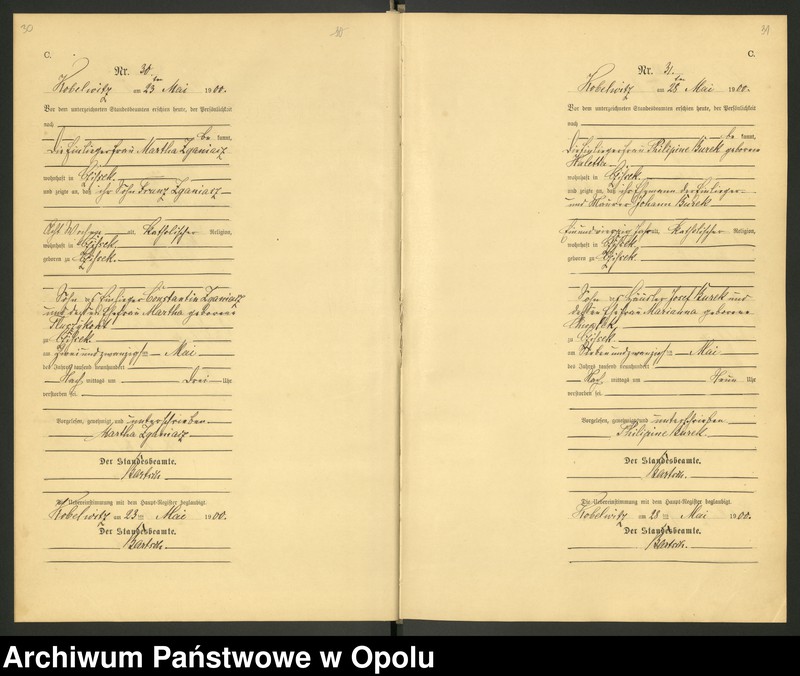 30
C.
Nr. 30.
Kobelwitz am 23 ten Mai 1900.
Vor dem unterzeichneten Standesbeamten erschien heute, der Persönlichkeit
nach
be kannt,
die Einliegerfrau Martha Zganiacz
wohnhaft in Czissek.
und zeigte an, daß ihr Sohn Franz Zganiacz
Acht Wochen alt, katholischer Religion,
wohnhaft in Czissek.
geboren zu Czissek.
Sohn des Einlieger Constantin Zganiacz
und dessen Ehefrau Martha geborene
zu Czissek
am zweiundzwanzigsten Mai
des Jahres tausend neunhundert
Nach mittags um Drei Uhr
verstorben sei.
Vorgelesen, genehmigt und unterschrieben
Martha Zganiacz
Der Standesbeamte.
Bartsch.
Die Uebereinstimmung mit dem Haupt-Register beglaubigt.
Kobelwitz am 23 ten Mai 1900.
Der Standesbeamte.
Bartsch.
31
C.
Nr. 31.
Kobelwitz am 28 ten Mai 1900.
Vor dem unterzeichneten Standesbeamten erschien heute, der Persönlichkeit
nach
be kannt,
die Einliegerfrau Philipine Burek geborene
wohnhaft in Czissek.
und zeigte an, daß ihr Ehemann der Einlieger
und Maurer Johann Burek
einundvierzig Jahre katholischer Religion,
wohnhaft in Czissek
geboren zu Czissek.
Sohn des Häusler Josef Burek und
dessen Ehefrau Marianna geborene
zu Czissek.
am Siebenundzwanzigsten Mai
des Jahres tausend neunhundert
Nach mittags um Neun Uhr
verstorben sei.
Vorgelesen, genehmigt und unterschrieben
Philipine Burek.
Der Standesbeamte.
Bartsch.
Die Uebereinstimmung mit dem Haupt-Register beglaubigt.
Kobelwitz am 28 ten Mai 1900.
Der Standesbeamte.
Bartsch.
Archiwum Państwowe w Opolu